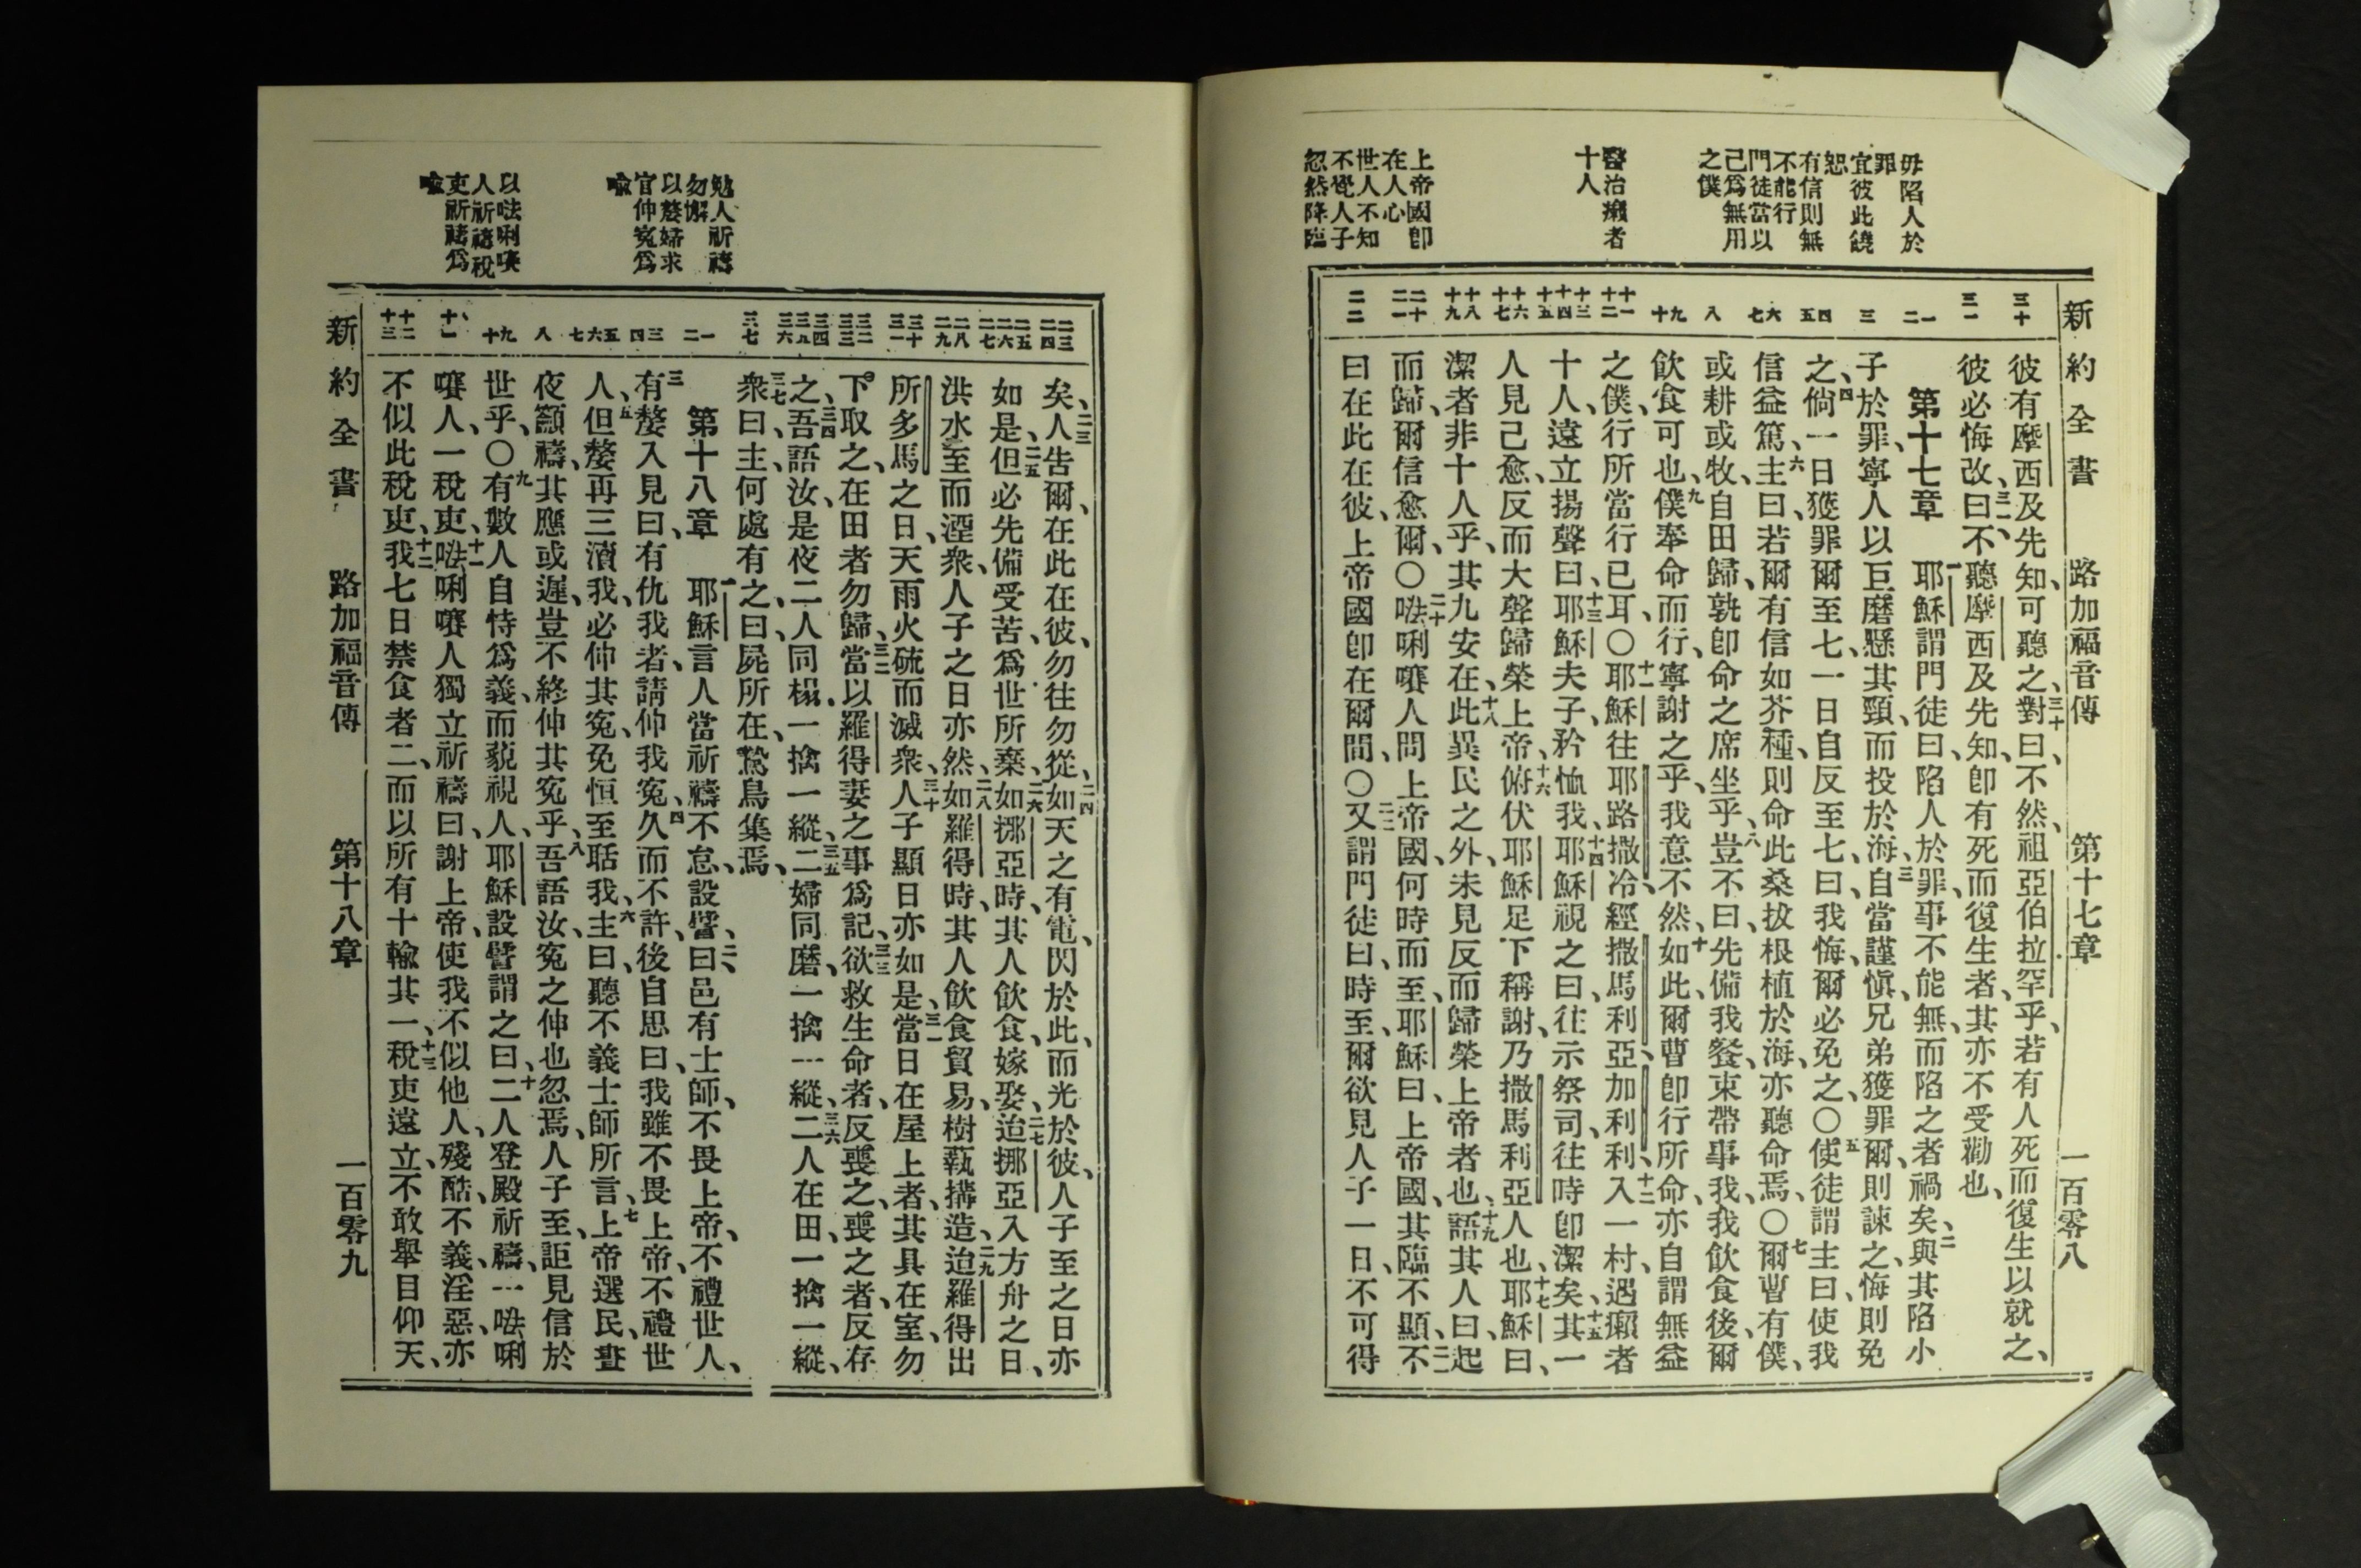 毋陷人於
罪
宜彼此饒
恕
有信則無
不能行
門徒當以
己爲無用
之僕
醫治癩者
十人
上帝國卽
在人心
世人不知
不覺人子
忽然降臨
新約全書 路加福音傳 第十七章 一百零八
三十 三一 一 二 三 四 五 六 七 八 九 十 十一 十二 十三 十四 十五 十六 十七 十八 十九 二十 二一 二二
彼有摩西及先知、可聽之、三十對曰、不然、祖亞伯拉罕乎、若有人死而復生以就之、
彼必悔改、三一曰、不聽摩西及先知、卽有死而復生者、其亦不受勸也、
第十七章 一耶穌謂門徒曰、陷人於罪、事不能無、而陷之者禍矣、二與其陷小
子於罪、寧人以巨磨懸其頸、而投於海、三自當謹愼、兄弟獲罪爾、則諫之、悔則免
之、四倘一日獲罪爾至七、一日自反至七、曰、我悔、爾必免之、〇五使徒謂主曰、使我
信益篤、六主曰、若爾有信如芥種、則命此桑拔根植於海、亦聽命焉、〇七爾曹有僕、
或耕或牧、自田歸、孰卽命之席坐乎、八豈不曰、先備我餐、束帶事我、我飲食後、爾
飲食可也、九僕奉命而行、寧謝之乎、我意不然、十如此、爾曹卽行所命、亦自謂無益
之僕、行所當行已耳、〇十一耶穌往耶路撒冷、經撒馬利亞、加利利、十二入一村、遇癩者
十人、遠立揚聲曰、十三耶穌夫子、矜恤我、十四耶穌視之曰、往示祭司、往時卽潔矣、十五其一
人見己愈、反而大聲歸榮上帝、十六俯伏耶穌足下稱謝、乃撒馬利亞人也、十七耶穌曰、
潔者非十人乎、其九安在、十八此異民之外、未見反而歸榮上帝者也、十九語其人曰、起
而歸、爾信愈爾、〇二十㗙唎㘔人問上帝國、何時而至、耶穌曰、上帝國、其臨不顯、二一不
曰在此在彼、上帝國卽在爾間、〇二二又謂門徒曰、時至、爾欲見人子一日、不可得
勉人祈禱
勿懈
以嫠婦求
官伸冤爲
喩
以㗙唎㘔
人祈禱稅
吏祈禱爲
喩
二三 二四 二五 二六 二七 二八 二九 三十 三一 三二 三三 三四 三五 三六 三七 一 二 三 四 五 六 七 八 九 十 十一 十二 十三
矣、二三人告爾、在此在彼、勿往勿從、二四如天之有電、閃於此、而光於彼、人子至之日亦
如是、二五但必先備受苦、爲世所棄、二六如挪亞時、其人飲食、嫁娶、二七迨挪亞入方舟之日、
洪水至而湮衆、人子之日亦然、二八如羅得時、其人飲食貿易、樹蓺搆造、二九迨羅得出
所多馬之日、天雨火硫而滅衆、三十人子顯日亦如是、三一當日在屋上者、其具在室、勿
下取之、在田者勿歸、三二當以羅得妻之事爲記、三三欲救生命者、反喪之、喪之者、反存
之、三四吾語汝、是夜二人同榻、一擒一縱、三五二婦同磨、一擒一縱、三六二人在田、一擒一縱、
三七衆曰、主、何處有之、曰、屍所在、鷙鳥集焉、
第十八章 一耶穌言人當祈禱不怠、設譬、二曰、邑有士師、不畏上帝、不禮世人、
三有嫠入見曰、有仇我者、請伸我冤、四久而不許、後自思曰、我雖不畏上帝、不禮世
人、五但嫠再三瀆我、必伸其冤、免恒至聒我、六主曰、聽不義士師所言、七上帝選民、晝
夜籲禱、其應或遲、豈不終伸其冤乎、八吾語汝、冤之伸也忽焉、人子至、詎見信於
世乎、〇九有數人自恃爲義、而藐視人、耶穌設譬謂之曰、十二人登殿祈禱、一㗙唎
㘔人、一稅吏、十一㗙唎㘔人獨立祈禱曰、謝上帝、使我不似他人、殘酷、不義、淫惡、亦
不似此稅吏、十二我七日禁食者二、而以所有十輸其一、十三稅吏遠立、不敢舉目仰天、
新約全書 路加福音傳 第十八章 一百零九